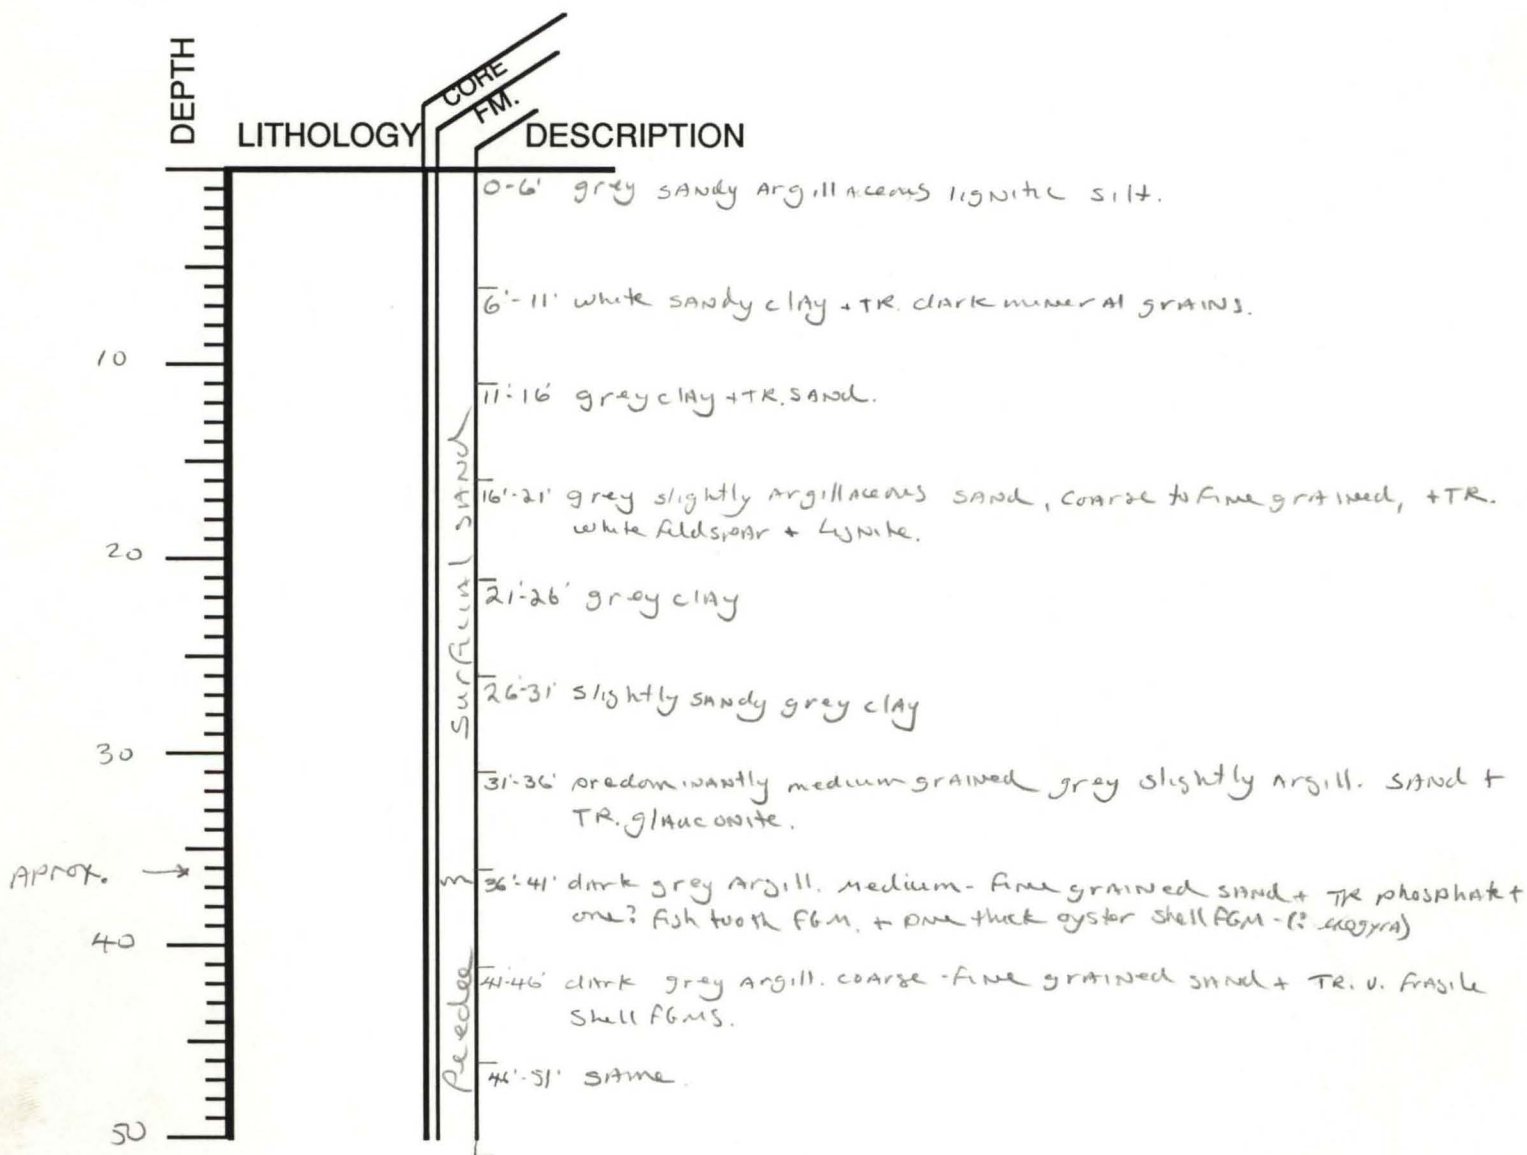 DEPTH
LITHOLOGY
CORE
FM.
DESCRIPTION
0-6' grey sandy Argillaceous lignitic silt.
6'-11' white sandy clay + TR. dark mineral grains.
10
11'-16' grey clay + TR. sand.
16'-21' grey slightly Argillaceous sand, coarse to fine grained, + TR.
white feldspar + Lignite.
20
Surficial sand
21'-26' grey clay
26'-31' slightly sandy grey clay
30
31'-36' predominantly medium grained grey slightly Argill. sand +
TR. glauconite.
Aprox.
36'-41' dark grey Argill. medium-fine grained sand + TR phosphate +
one? fish tooth FGM. + one thick oyster shell FGM - (? exogyra)
40
41'-46' dark grey Argill. coarse-fine grained sand + TR. v. fragile
shell FGMS.
Peedee
46'-51' same.
50